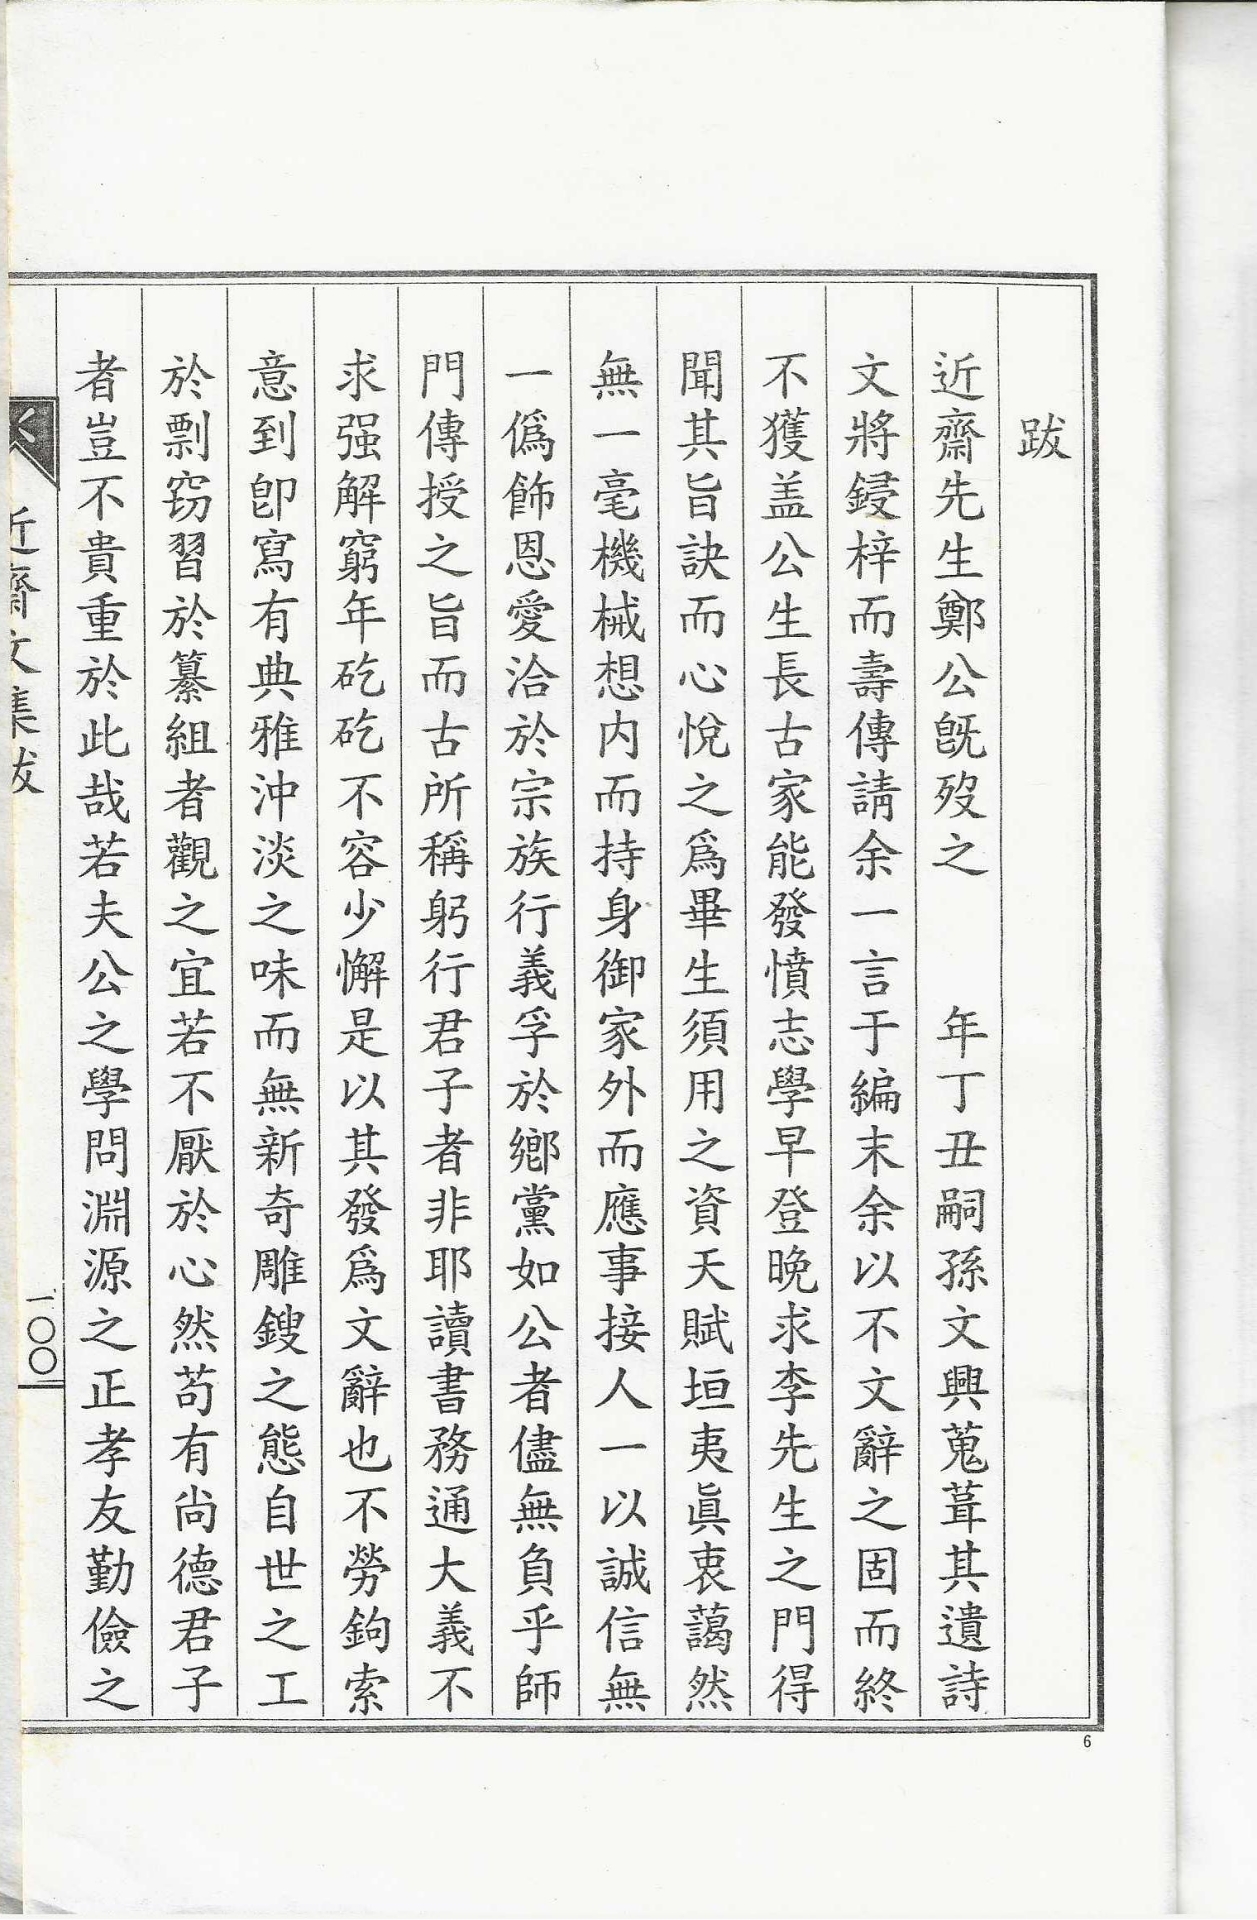 跋
近齋先生鄭公旣歿之　年丁丑嗣孫文興蒐葺其遺詩
文將鋟梓而壽傳請余一言于編末余以不文辭之固而終
不獲盖公生長古家能發憤志學早登晚求李先生之門得
聞其旨訣而心悅之爲畢生須用之資天賦坦夷眞衷藹然
無一毫機械想内而持身御家外而應事接人一以誠信無
一僞飾恩愛洽於宗族行義孚於鄕黨如公者儘無負乎師
門傳授之旨而古所稱躬行君子者非耶讀書務通大義不
求强解窮年矻矻不容少懈是以其發爲文辭也不勞鉤索
意到卽寫有典雅沖淡之味而無新奇雕鎪之態自世之工
於剽窃習於纂組者觀之宜若不厭於心然苟有尚德君子
者豈不貴重於此哉若夫公之學問淵源之正孝友勤儉之
近齋文集跋
一〇〇
6